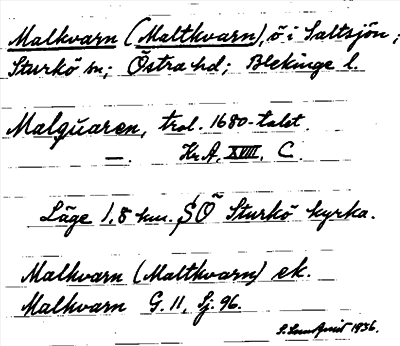 Malkvarn (Maltkvarn), ö i Saltsjön;
Sturkö sn; Östra hd; Blekinge l.
Malquaren, trol. 1680-talet.
—. Kr.A. XVIII. C.
Läge 1,8 km. SÖ Sturkö kyrka.
Malkvarn (Maltkvarn) ek.
Malkvarn G. 11, Sj. 96.
1936.